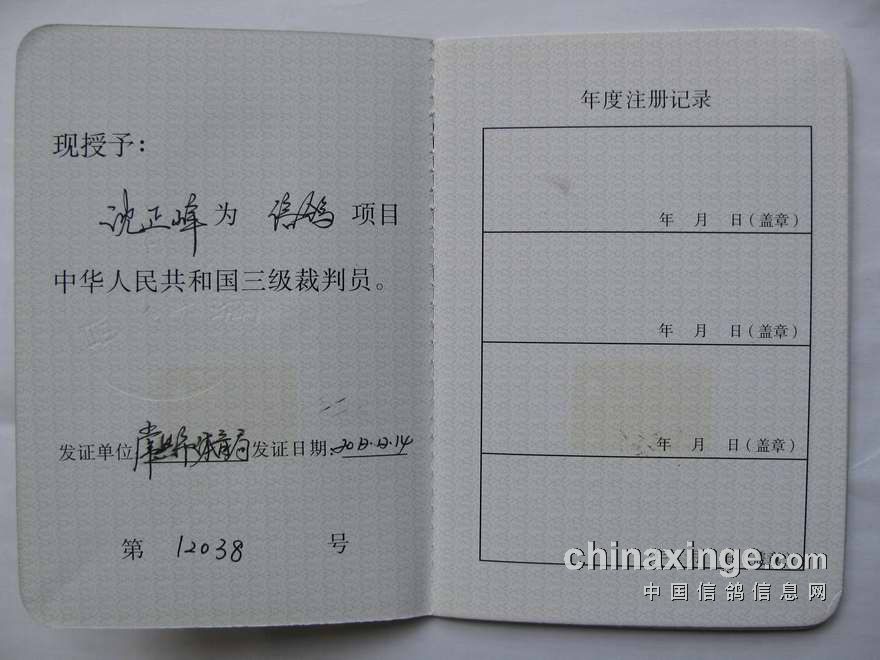 现授予：
沈正峰为 信鸽 项目
中华人民共和国三级裁判员。
发证单位 体育局 发证日期
第 12038 号
年度注册记录
年 月 日（盖章）
年 月 日（盖章）
年 月 日（盖章）
年 月 日（盖章）
chinaxinge.com
中国信鸽信息网